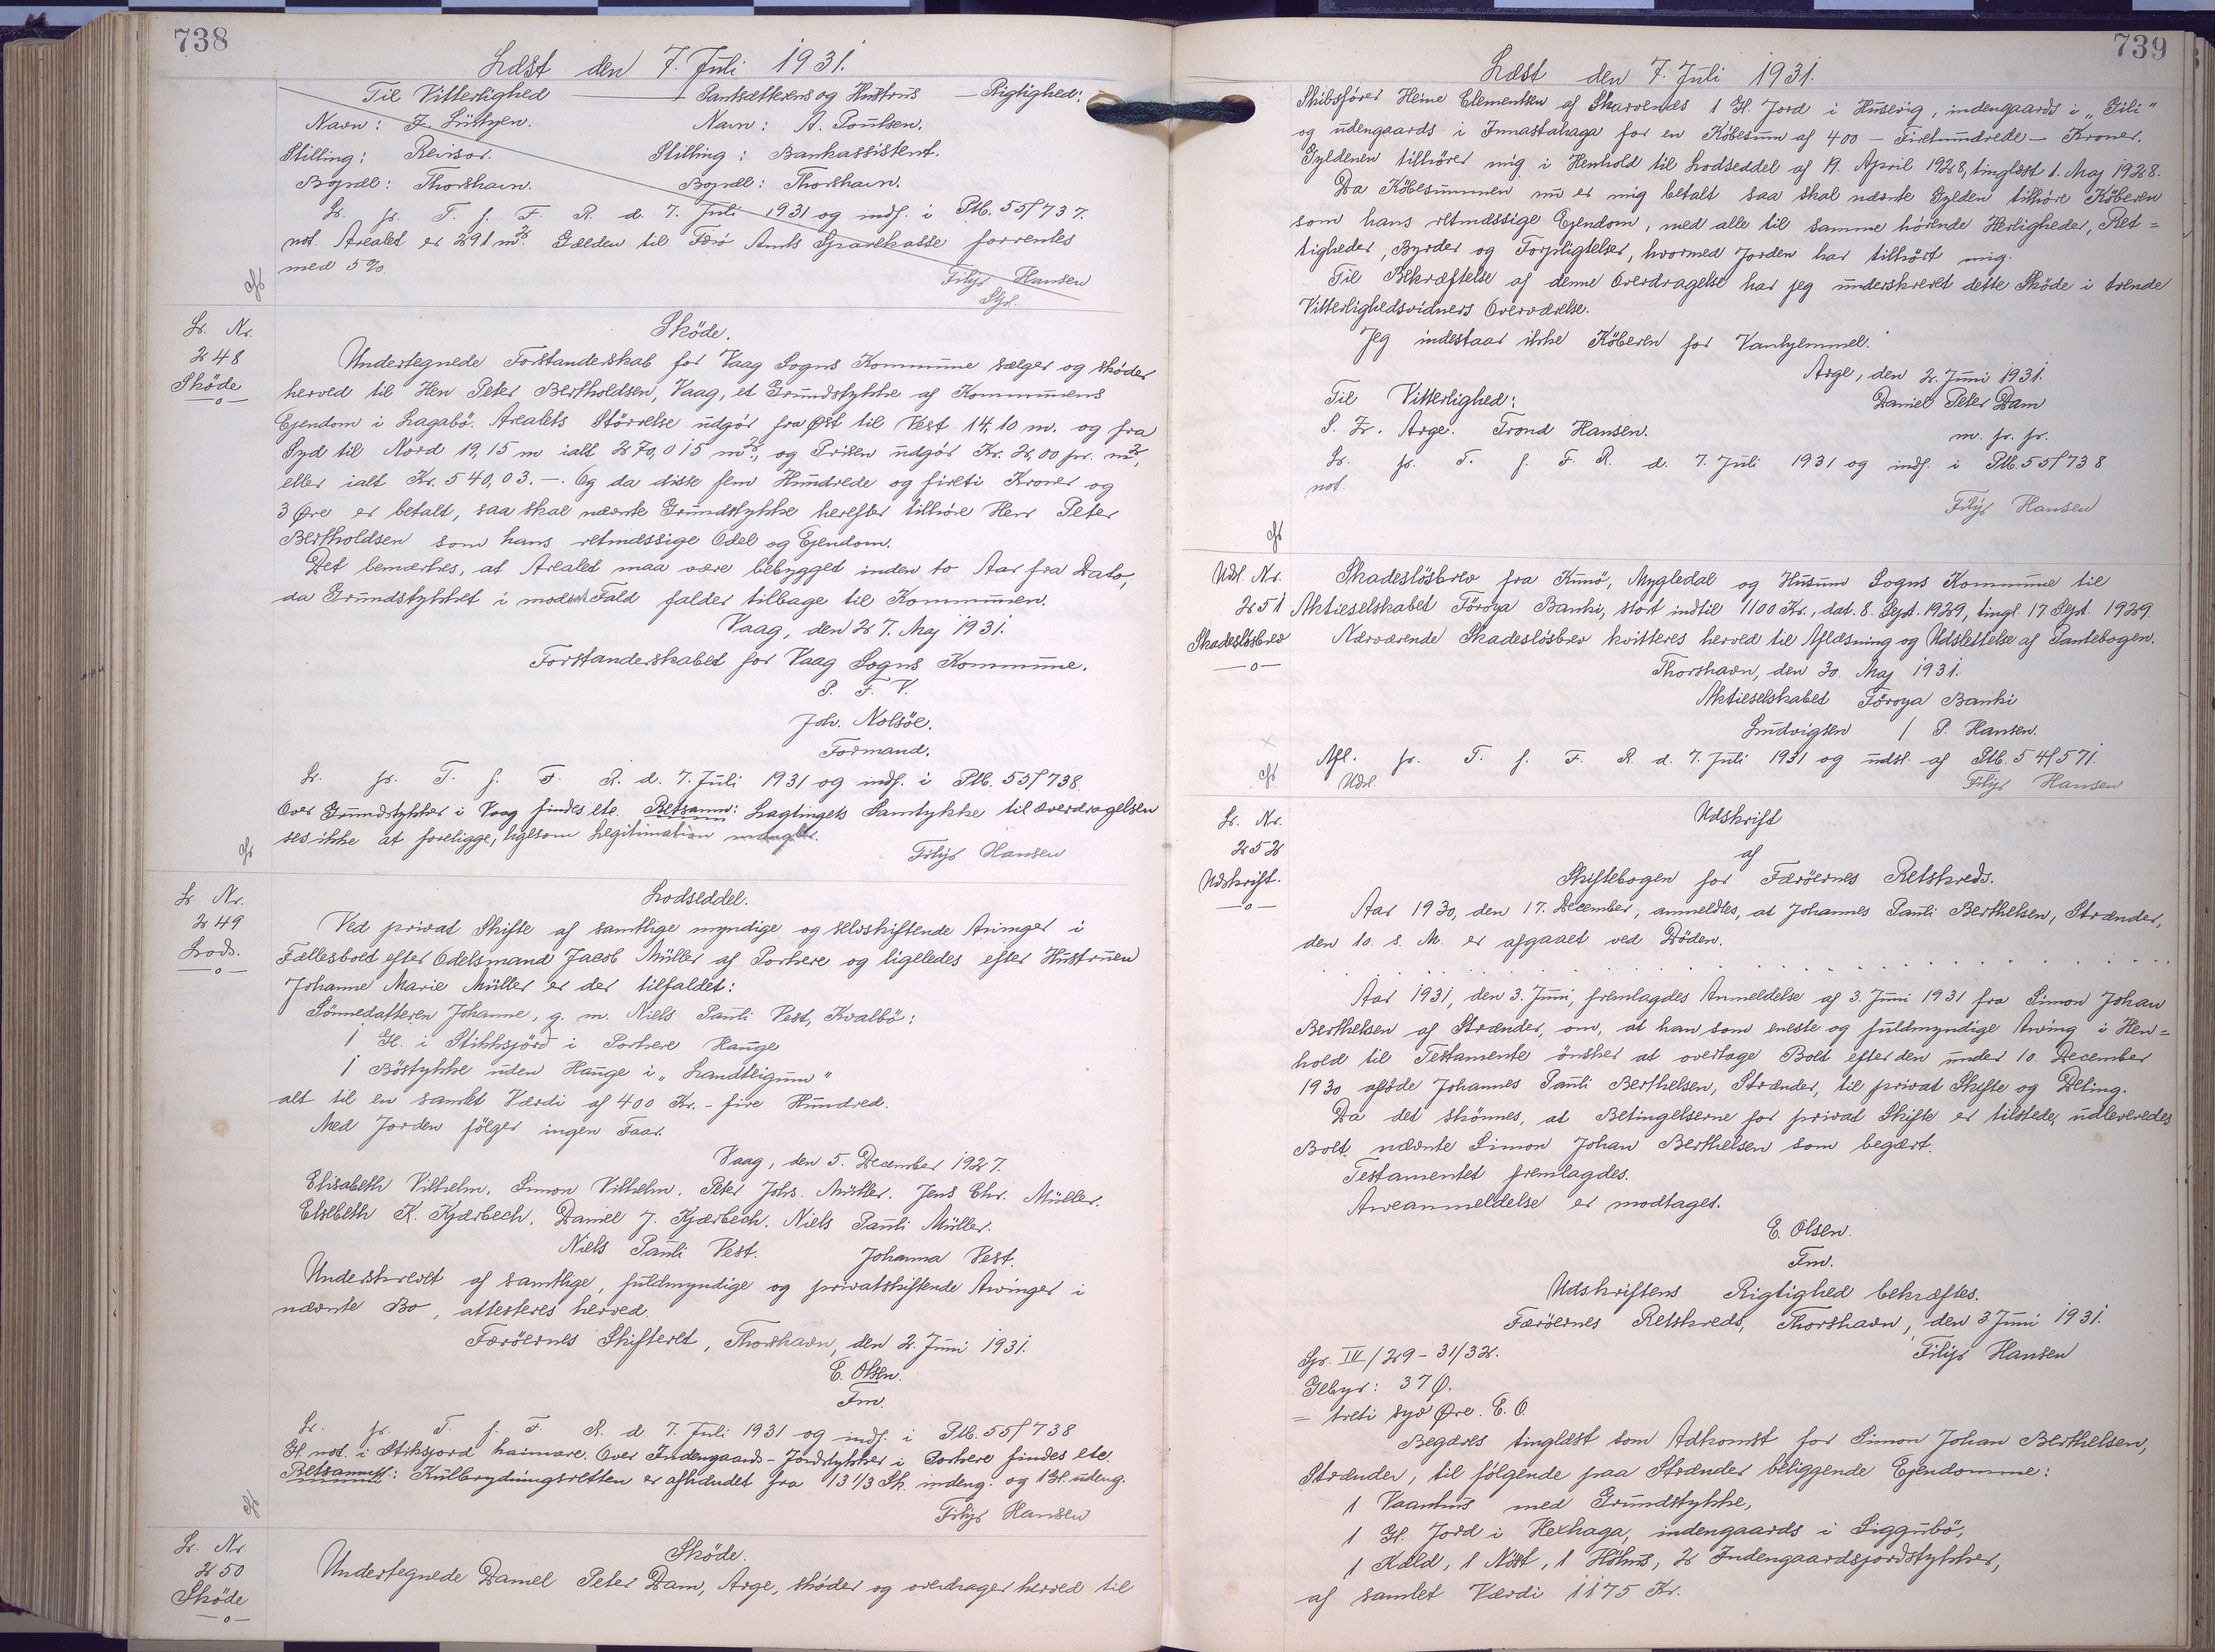 738
Læst den 7. Juli 1931.
Til Vitterlighed — Pantsætterens og Hustrus Rigtighed:
Navn: F. Lüttzen. Navn: A. Poulsen.
Stilling: Revisor. Stilling: Bankassistent.
Bopæl: Thorshavn. Bopæl: Thorshavn.
Lr. fr. T. f. F. R. d. 7. Juli 1931 og indf. i Ptb. 55f737.
not. Arealet er 291 m². Gælden til Færø Amts Sparekasse forrentes
med 5%.
Filip Hansen
Lr. Nr.
248
Sköde
—o—
Sköde.
Undertegnede Forstanderskab for Vaag Sogns Kommune sælger og sköder
herved til Herr Peter Bertholdsen, Vaag, et Grundstykke af Kommunens
Ejendom i Lagabö. Arealets Störrelse udgör fra Öst til Vest 14,10 m. og fra
Syd til Nord 19,15 m ialt 270,015 m², og Prisen udgör Kr. 2,00 pr. m²,
eller ialt Kr. 540,03.-. Og da disse fem Hundrede og fireti Kroner og
3 Øre er betalt, saa skal nævnte Grundstykke herefter tilhöre Herr Peter
Bertholdsen som hans retmæssige Odel og Ejendom.
Det bemærkes, at Arealet maa være bebygget inden to Aar fra Dato,
da Grundstykket i modsat Fald falder tilbage til Kommunen.
Vaag, den 27. Maj 1931.
Forstanderskabet for Vaag Sogns Kommune.
P. F. V.
Joh. Nolsöe.
Formand.
Lr. fr. T. f. F. R. d. 7. Juli 1931 og indf. i Ptb. 55f738.
Over Grundstykker i Vaag findes etc. Retsanm: Lagtingets Samtykke til Overdragelsen
ses ikke at foreligge, ligesom Legitimation mangler.
Filip Hansen
Lr. Nr.
249
Lods.
—o—
Lodseddel.
Ved privat Skifte af samtlige myndige og selvskiftende Arvinger i
Fællesboet efter Odelsmand Jacob Müller af Porkere og ligeledes efter Hustruen
Johanne Marie Müller er der tilfaldet:
Sönnedatteren Johanne, g. m. Niels Pauli Vest, Kvalbö:
1 Gl. i Stikksjörd i Porkere Hauge
1 Böstykke uden Hauge i „Landteigum"
alt til en samlet Værdi af 400 Kr. - fire Hundred.
Med Jorden fölger ingen Faar.
Vaag, den 5. December 1927.
Elisabeth Vilhelm. Simon Vilhelm. Peter Johs. Müller. Jens Chr. Müller.
Elsebeth K. Kjærbech. Daniel J. Kjærbech. Niels Pauli Müller.
Niels Pauli Vest. Johanna Vest.
Underskrevet af samtlige, fuldmyndige og privatskiftende Arvinger i
nævnte Bo, attesteres herved.
Færöernes Skifteret, Thorshavn, den 2. Juni 1931.
E. Olsen.
Fm.
Lr. fr. T. f. F. R. d. 7. Juli 1931 og indf. i Ptb. 55f738
Gl. not. i Stiksjord haimare. Over Indengaards-Jordstykker i Porkere findes etc.
Retsanm: Kulbrydningsretten er afhændet fra 13 1/3 Sk. indeng. og 1 Gl. udeng.
Filip Hansen
Lr. Nr.
250
Sköde
—o—
Sköde.
Undertegnede Daniel Peter Dam, Arge, sköder og overdrager herved til
739
Læst den 7. Juli 1931.
Skibsförer Heine Clementsen af Skarvenæs 1 Gl. Jord i Husevig, indengaards i „Gili"
og udengaards i Innastahaga for en Köbesum af 400 - Firehundrede - Kroner.
Gyldenen tilhörer mig i Henhold til Lodseddel af 19. April 1928, tinglæst 1. Maj 1928.
Da Köbesummen nu er mig betalt saa skal nævnte Gylden tilhöre Köberen
som hans retmæssige Ejendom, med alle til samme hörende Herligheder, Ret=
tigheder, Byrder og Forpligtelser, hvormed Jorden har tilhört mig.
Til Bekræftelse af denne Overdragelse har jeg underskrevet dette Sköde i trende
Vitterlighedsvidners Overværelse.
Jeg indestaar ikke Köberen for Vanhjemmel.
Arge, den 2. Juni 1931.
Til Vitterlighed: Daniel Peter Dam
S. Fr. Arge. Trond Hansen. m. p. p.
Lr. fr. T. f. F. R. d. 7. Juli 1931 og indf. i Ptb. 55f738
not.
Filip Hansen
Udsl. Nr.
251
Skadeslösbrev
—o—
Skadeslösbrev fra Kunö, Mygledal og Husum Sogns Kommune til
Aktieselskabet Föroya Banki, stort indtil 1100 Kr., dat. 8. Sept. 1929, tingl. 17 Sept. 1929
Nærværende Skadeslösbrev kvitteres herved til Aflæsning og Udslettelse af Pantebogen.
Thorshavn, den 30. Maj 1931.
Aktieselskabet Föroya Banki
Ludvigsen / P. Hansen.
Afl. fr. T. f. F. R. d. 7. Juli 1931 og udsl. af Ptb. 54f571.
Udsl. Filip Hansen
Lr. Nr.
252
Udskrift.
—o—
Udskrift
af
Skiftebogen for Færöernes Retskreds.
Aar 1930, den 17. December, anmeldtes, at Johannes Pauli Berthelsen, Strænder,
den 10. s. M. er afgaaet ved Döden.
. . . . . . . . . . . . . . . . . . . .
Aar 1931, den 3. Juni, fremlagdes Anmeldelse af 3. Juni 1931 fra Simon Johan
Berthelsen af Strænder, om, at han som eneste og fuldmyndige Arving i Hen=
hold til Testamente önsker at overtage Boet efter den under 10. December
1930 afdöde Johannes Pauli Berthelsen, Strænder, til privat Skifte og Deling.
Da det skönnes, at Betingelserne for privat Skifte er tilstede, udleveredes
Boet nævnte Simon Johan Berthelsen som begært.
Testamentet fremlagdes.
Arveanmeldelse er modtaget.
E. Olsen.
Fm.
Udskriftens Rigtighed bekræftes.
Færöernes Retskreds, Thorshavn, den 3 Juni 1931.
Spr. IV/29-31/32. Filip Hansen
Gebyr: 37 Ø.
= treti syv Øre. E. O.
Begæres tinglæst som Adkomst for Simon Johan Berthelsen,
Strænder, til fölgende paa Strænder beliggende Ejendomme:
1 Vaanhus med Grundstykke,
1 Gl. Jord i Hexhaga, indengaards i Siggubö,
1 Kæld, 1 Nöst, 1 Höhus, 2 Indengaardsjordstykker,
af samlet Værdi 1175 Kr.